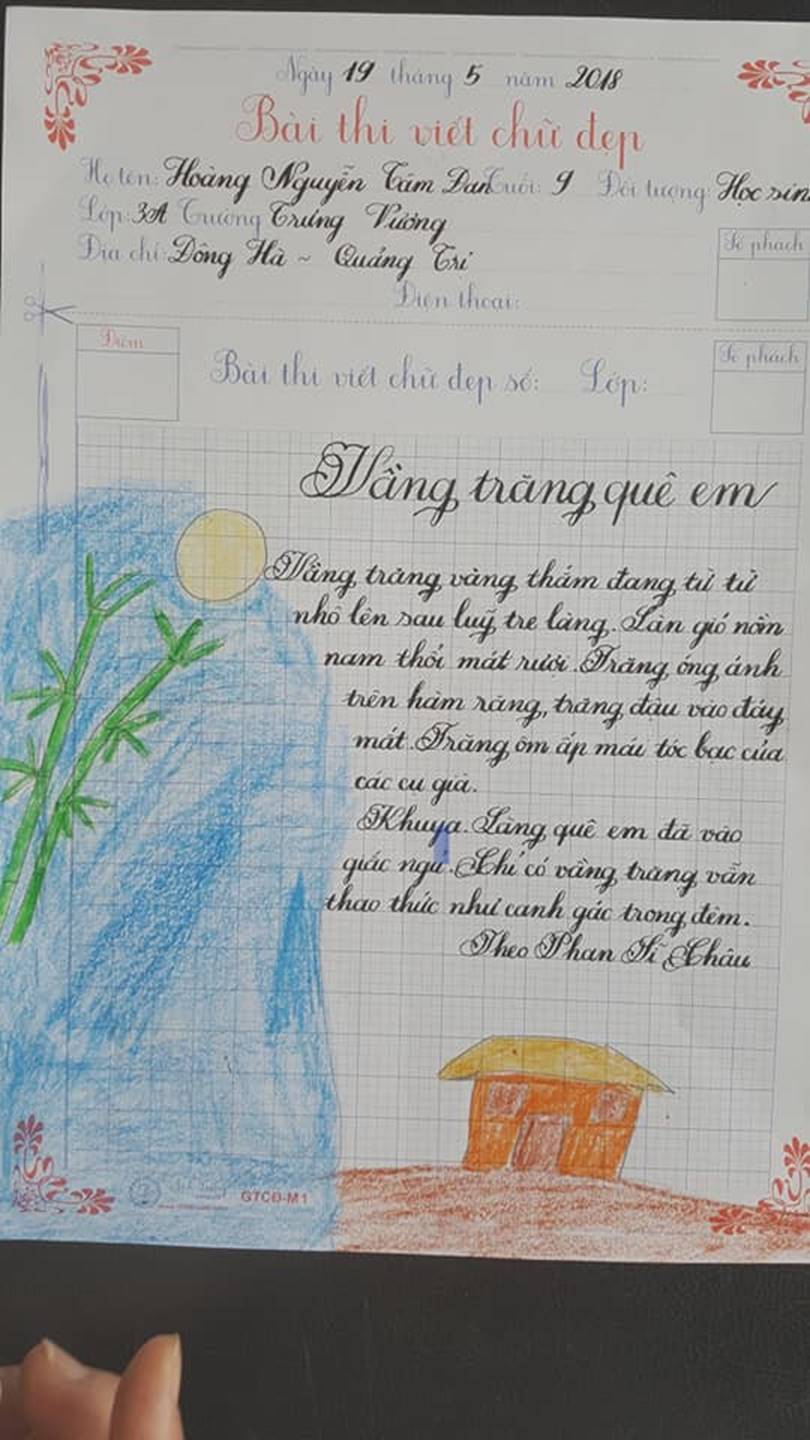 Ngày 19 tháng 5 năm 2018
Bài thi viết chữ đẹp
Họ tên: Hoàng Nguyễn Tâm Đan Tuổi: 9 Đối tượng: Học sin
Lớp: 3A Trường Trưng Vương
Địa chỉ: Đông Hà ~ Quảng Trị
Điện thoại:
Số phách
Điểm
Bài thi viết chữ đẹp số: Lớp:
Số phách
Vầng trăng quê em
Vầng trăng vàng thắm đang từ từ
nhô lên sau luỹ tre làng. Làn gió nồm
nam thổi mát rượi. Trăng óng ánh
trên hàm răng, trăng đậu vào đáy
mắt. Trăng ôm ấp mái tóc bạc của
các cụ già.
Khuya. Làng quê em đã vào
giấc ngủ. Chỉ có vầng trăng vẫn
thao thức như canh gác trong đêm.
Theo Phan Sĩ Châu
GTCĐ-M1